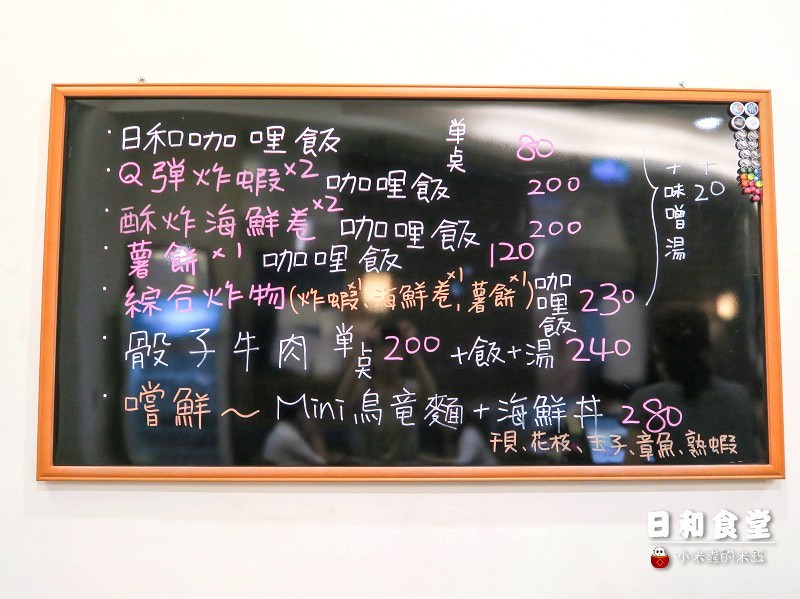 ·日和咖哩飯 单点 80
·Q弹炸蝦x2 咖哩飯 200
·酥炸海鮮卷x2 咖哩飯 200
·薯餅x1 咖哩飯 120
·綜合炸物(炸蝦x1、海鮮卷x1、薯餅x1)咖哩飯 230
+味噌湯
+20
·骰子牛肉 单点 200 +飯+湯 240
·嚐鮮～Mini烏竜麵+海鮮丼 280
干貝、花枝、玉子、章魚、熟蝦
日和食堂
小米蟲的米缸